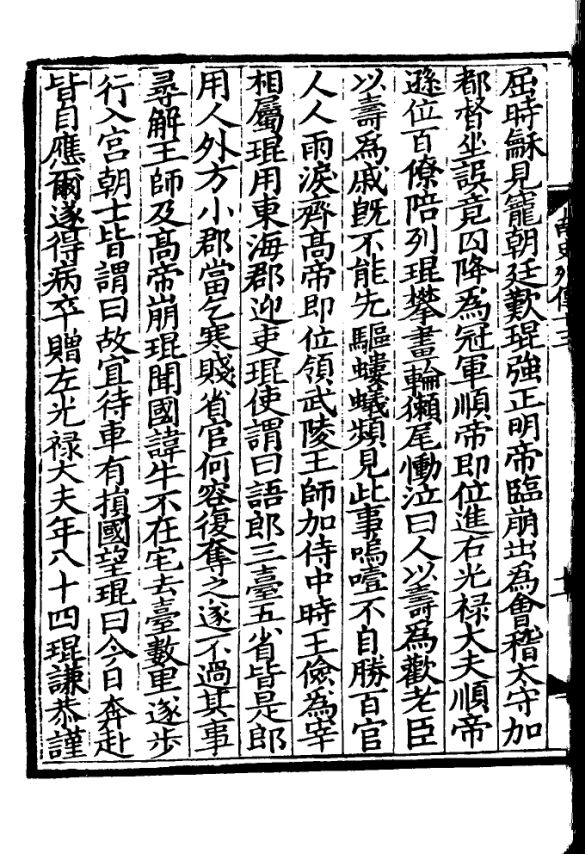 屈時龢見寵朝廷歎琨強正明帝臨崩出為會稽太守加
都督坐誤竟囚降為冠軍順帝即位進右光禄大夫順帝
遜位百僚陪列琨攀畫輪獺尾慟泣曰人以壽為歡老臣
以壽為戚既不能先驅螻蟻頻見此事嗚噎不自勝百官
人人雨淚齊髙帝即位領武陵王師加侍中時王儉為宰
相屬琨用東海郡迎吏琨使謂曰語郎三臺五省皆是郎
用人外方小郡當乞寒賤省官何容復奪之遂不過其事
尋解王師及髙帝崩琨聞國諱牛不在宅去臺數里遂步
行入宮朝士皆謂曰故宜待車有損國望琨曰今日奔赴
皆自應爾遂得病卒贈左光禄大夫年八十四琨謙恭謹